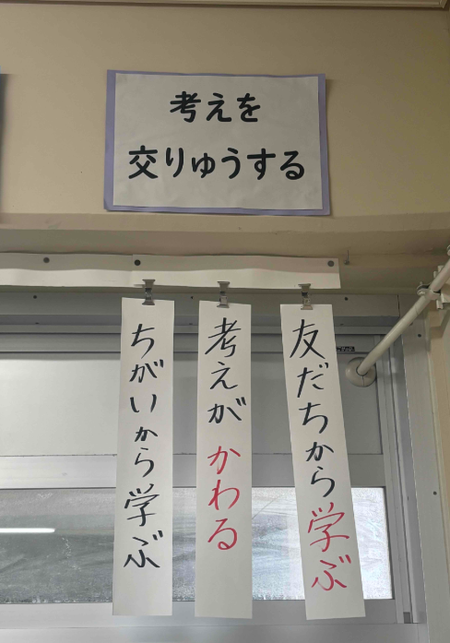 考えを
交りゅうする
友だちから学ぶ
考えがかわる
ちがいから学ぶ